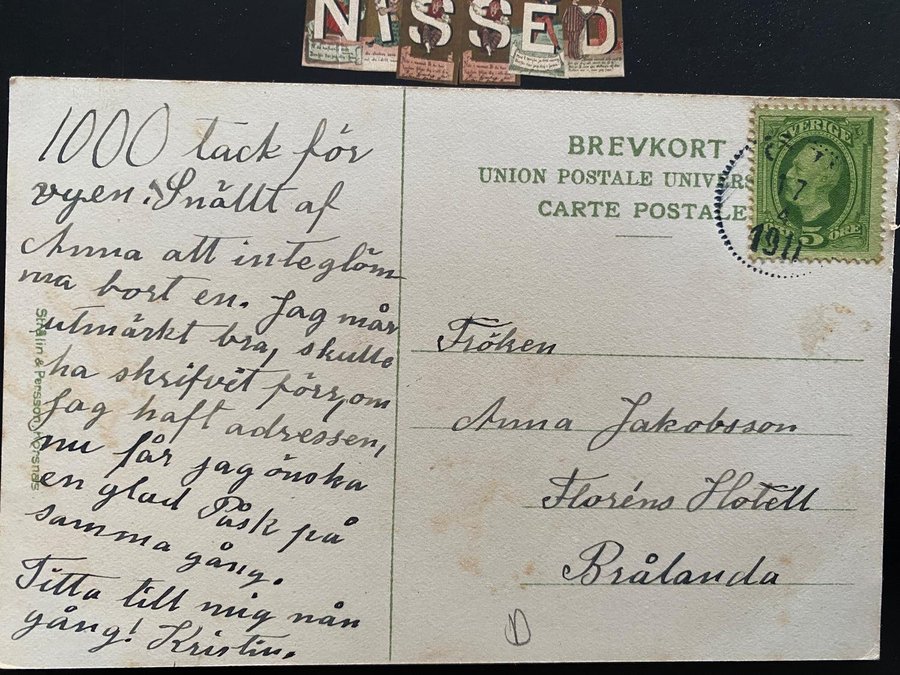 NISSED
1000 tack för
vyen. Snällt af
Anna att inte glöm-
ma bort en. Jag mår
utmärkt bra, skulle
ha skrifvit förr, om
jag haft adressen,
nu får jag önska
en glad Påsk på
samma gång.
Titta till mig nån
gång! Kristin.
Strålin & Persson,
BREVKORT
UNION POSTALE UNIVERS
CARTE POSTALE
SVERIGE
5 ÖRE
17
4
1911
Fröken
Anna Jakobsson
Floréns Hotell
Brålanda
D